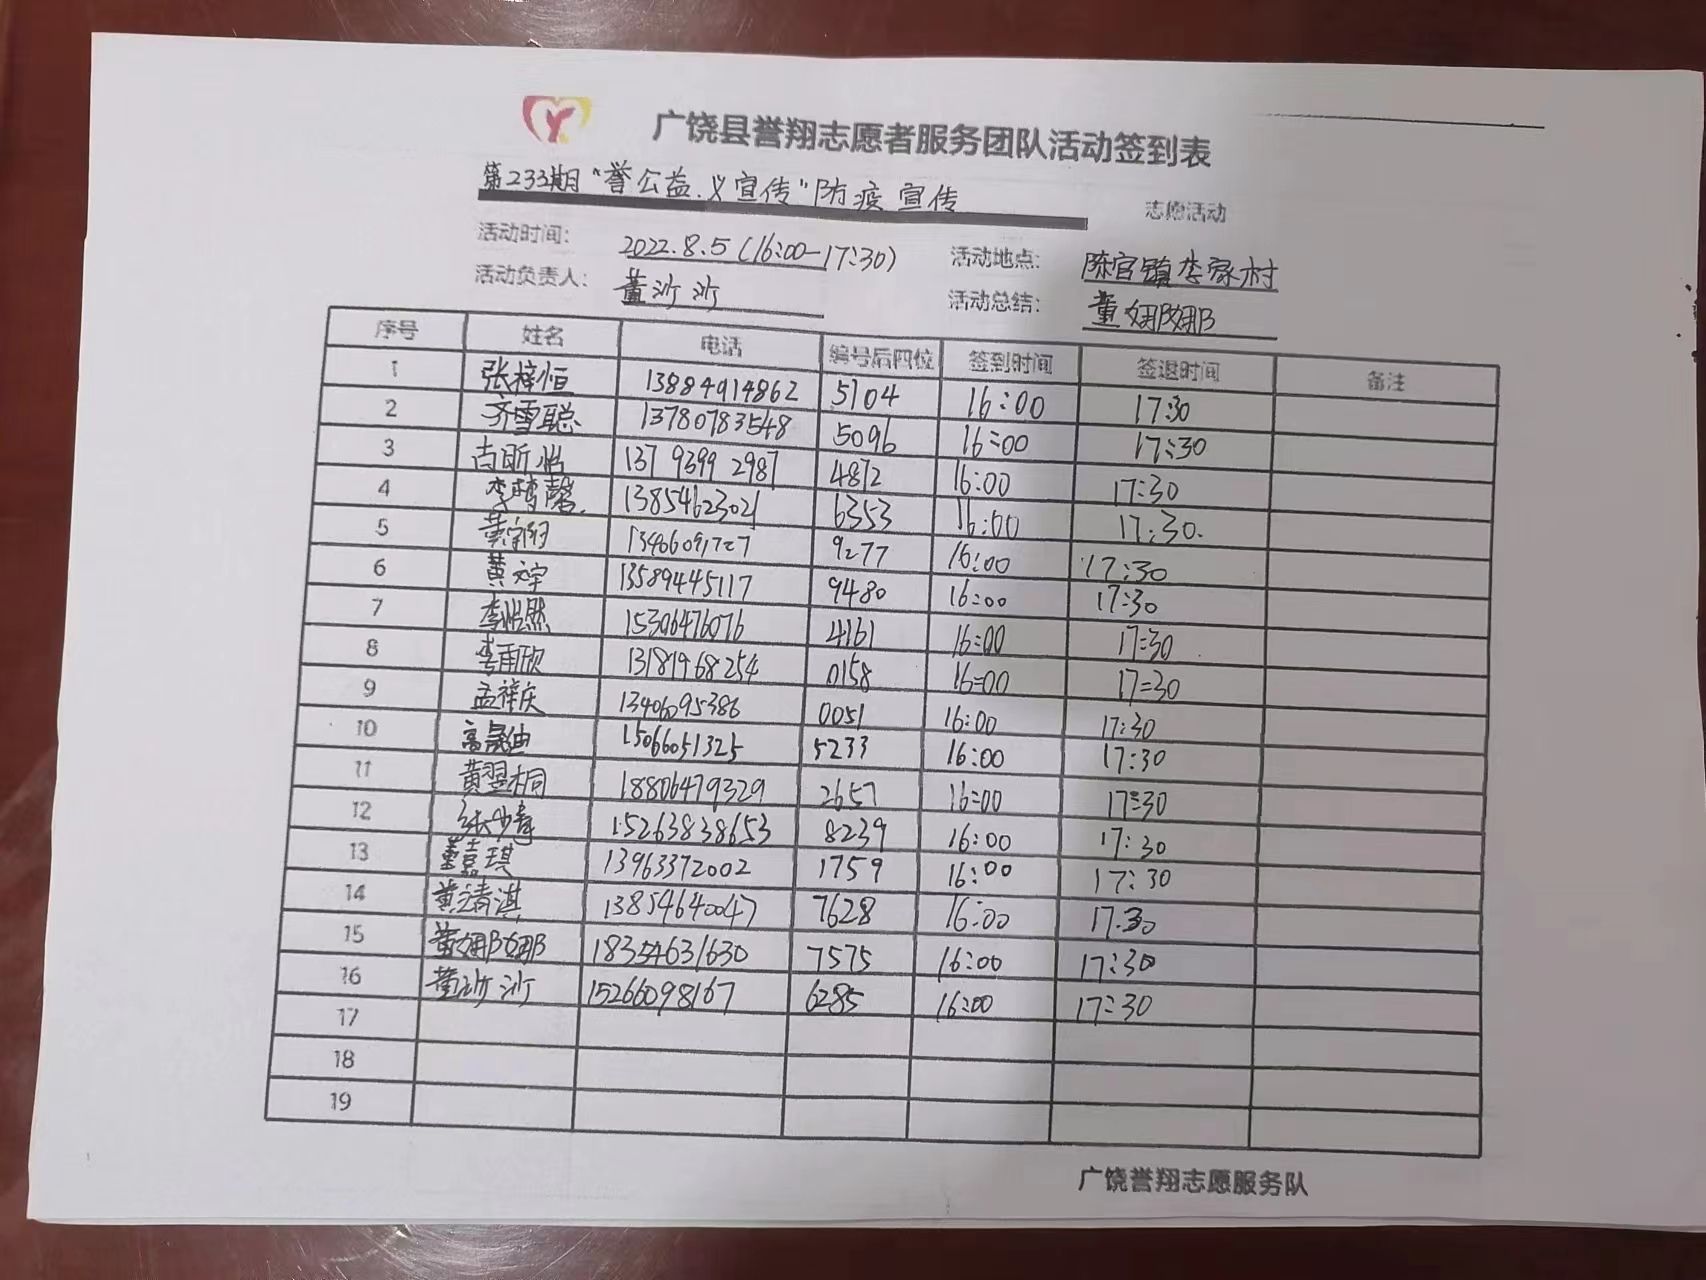 广饶县誉翔志愿者服务团队活动签到表
第233期"誉公益.义宣传"防疫宣传 志愿活动
活动时间: 2022.8.5(16:00-17:30) 活动地点: 陈官镇李家村
活动负责人: 董沙沙 活动总结: 董娜娜
序号 姓名 电话 编号后四位 签到时间 签退时间 备注
1 张梓恒 13884914862 5104 16:00 17:30
2 齐雪聪 13780783548 5096 16:00 17:30
3 尚昕怡 13793992987 4872 16:00 17:30
4 李梦馨 13854623021 6353 16:00 17:30
5 黄 13406091727 9277 16:00 17:30
6 黄文宇 13589445117 9480 16:00 17:30
7 李怡然 15306476076 4161 16:00 17:30
8 李雨欣 13181968254 0158 16:00 17:30
9 孟祥庆 13406095386 0051 16:00 17:30
10 高晟迪 15066051325 5233 16:00 17:30
11 黄翌桐 18806479329 2657 16:00 17:30
12 张少青 15263838653 8239 16:00 17:30
13 董嘉琪 13963372002 1759 16:00 17:30
14 黄靖淇 13854640047 7628 16:00 17:30
15 董娜娜 18354631630 7575 16:00 17:30
16 董沙沙 15266098167 6285 16:00 17:30
17
18
19
广饶誉翔志愿服务队